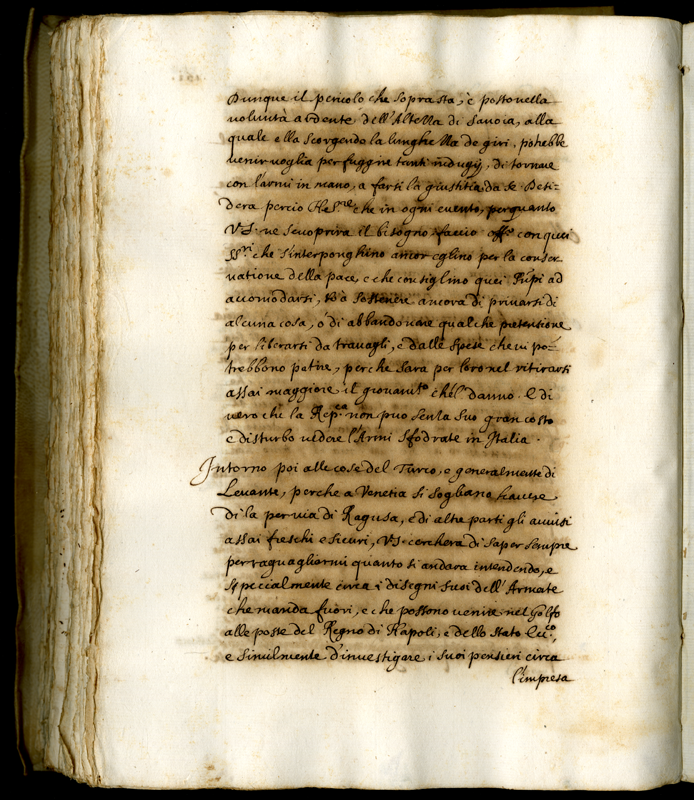 Dunque il pericolo che soprasta, è posto nella
voluntà ardente dell'Altezza di Savoia, alla
quale ella scorgendo la lunghezza de giri, potrebbe
venir voglia per fuggire tanti indugij, di tornare
con l'armi in mano, a farsi la giustitia da se. Desi-
dera percio N.Sre che in ogni evento, per quanto
V.S. ne scuoprirà il bisogno faccia con quei
SSri che s'interponghino ancor eglino per la conser
vatione della pace, e che consiglino quei Prīpi ad
accomodarsi, ancora di privarsi di
alcuna cosa, o di abbandonare qualche pretensione
per liberarsi da travagli, e dalle spese che vi po-
trebbono patire, perche sara per loro nel ritirarsi
assai maggiore il giovamto che'l danno. E di
vero che la Repca non può senza suo gran costo
e disturbo vedere l'Armi sfodrate in Italia.
Intorno poi alle cose del Turco, e generalmente di
Levante, perche a Venetia si sogliano havere
di la per via di Ragusa, e di altre parti gli avvisi
assai freschi e sicuri, V.S. cercherà di saper sempre
per ragguagliarmi quanto si andarà intendendo, e
spetialmente circa i disegni suoi dell'Armate
che manda fuori, e che possono venire nel Golfo
alle poste del Regno di Napoli, e dello stato Ecco,
e similmente d'investigare i suoi pensieri circa
l'impresa